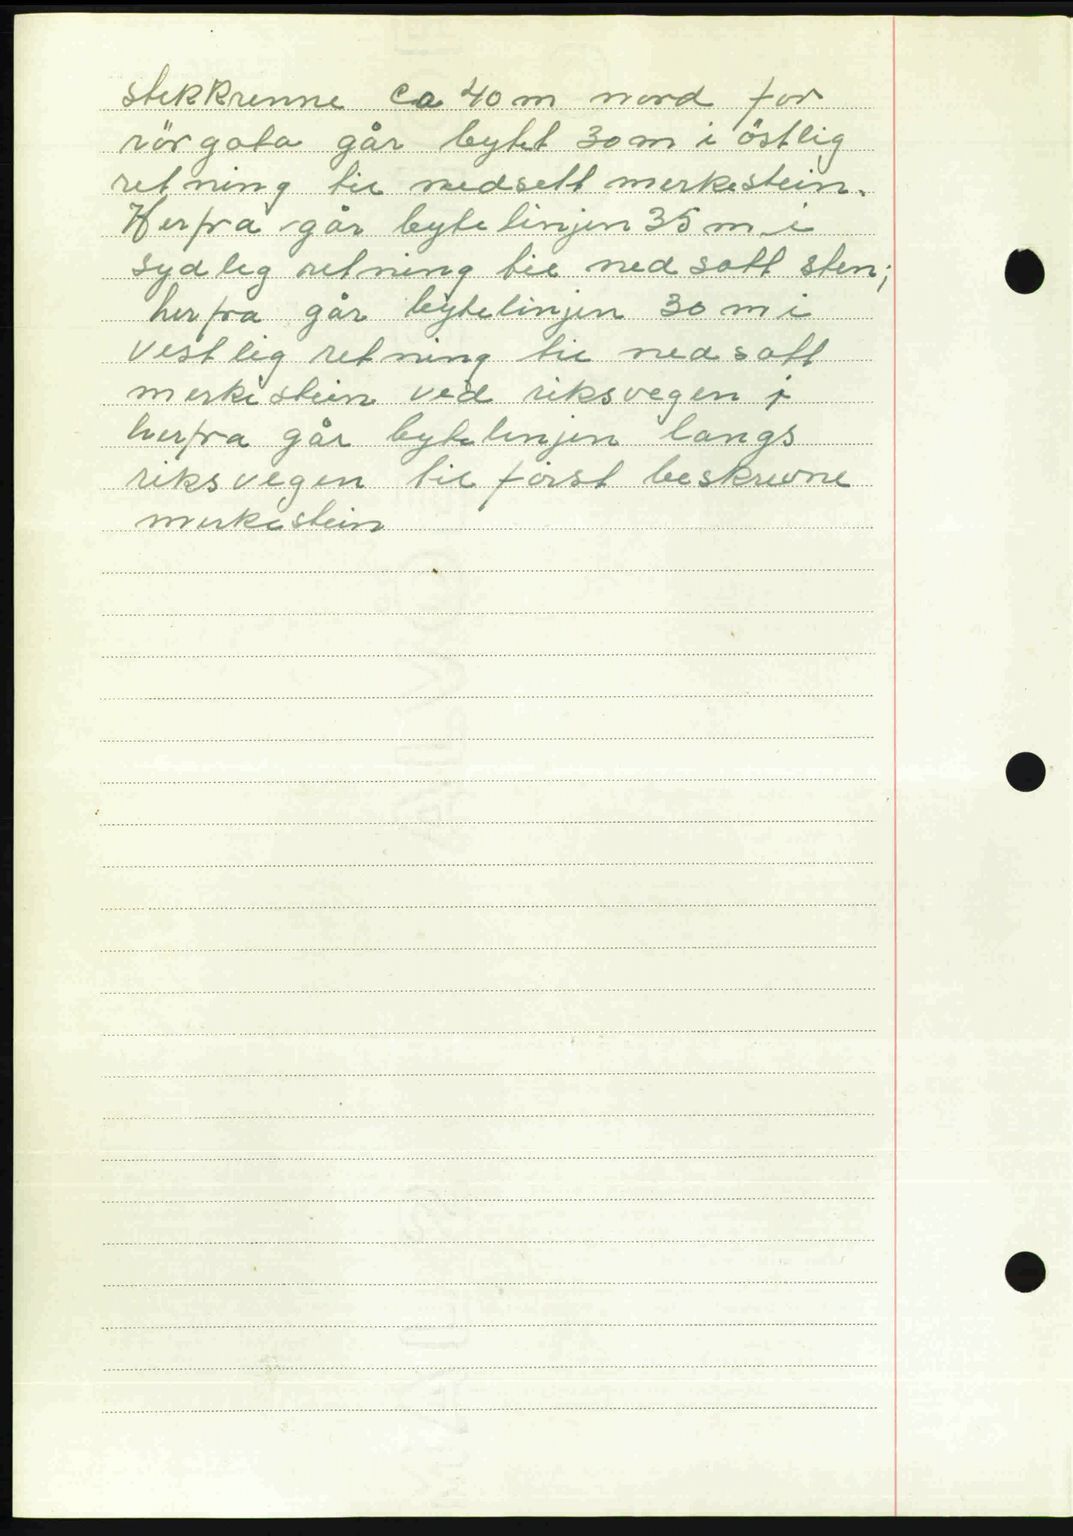 stikkrenne ca 40 m nord for
rörgata går bytet 30 m i östlig
retning til nedsett merkestein.
Herfra går bytelinjen 35 m i
sydlig retning til nedsatt sten;
herfra går bytelinjen 30 m i
vestlig retning til nedsatt
merkestein ved riksvegen;
herfra går bytelinjen langs
riksvegen til först beskrevne
merkestein